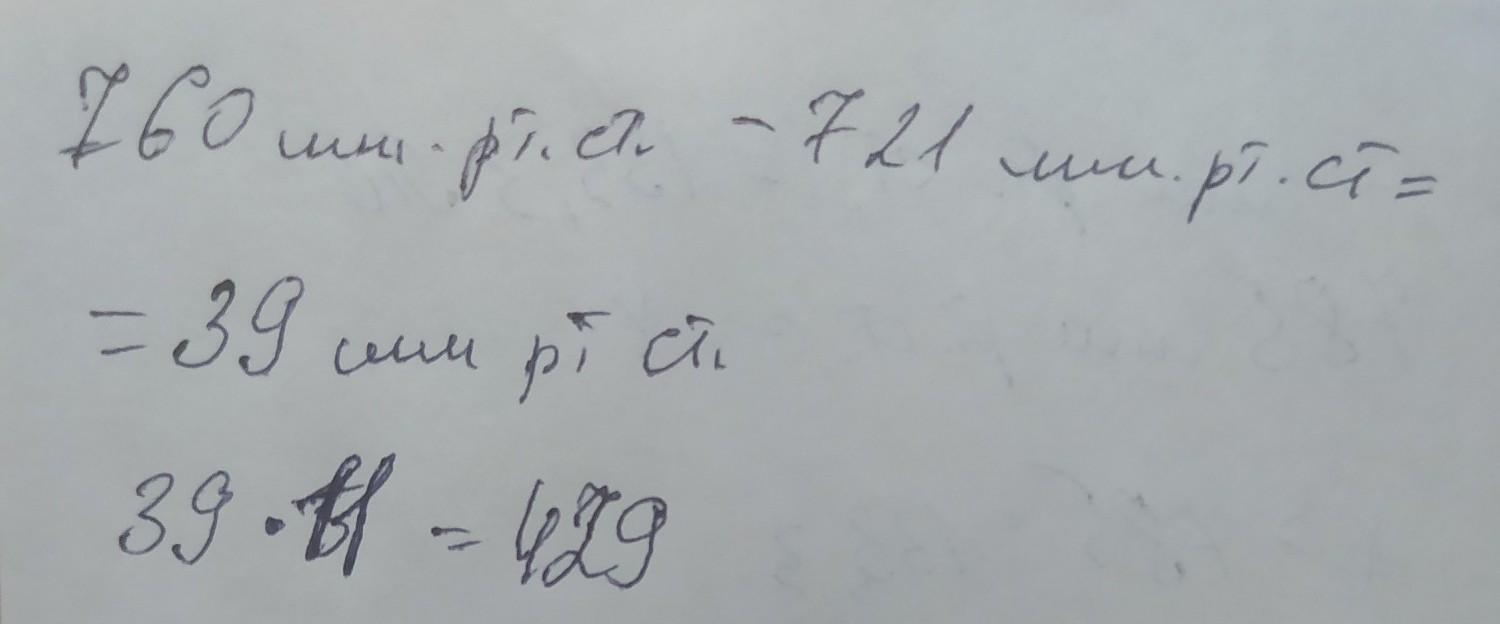 760 мм. рт. ст. - 721 мм. рт. ст =
= 39 мм рт ст.
39 · 11 = 429